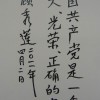 国共产党是一
大、光荣、正确的
顾秀莲二〇一一年
四月二日